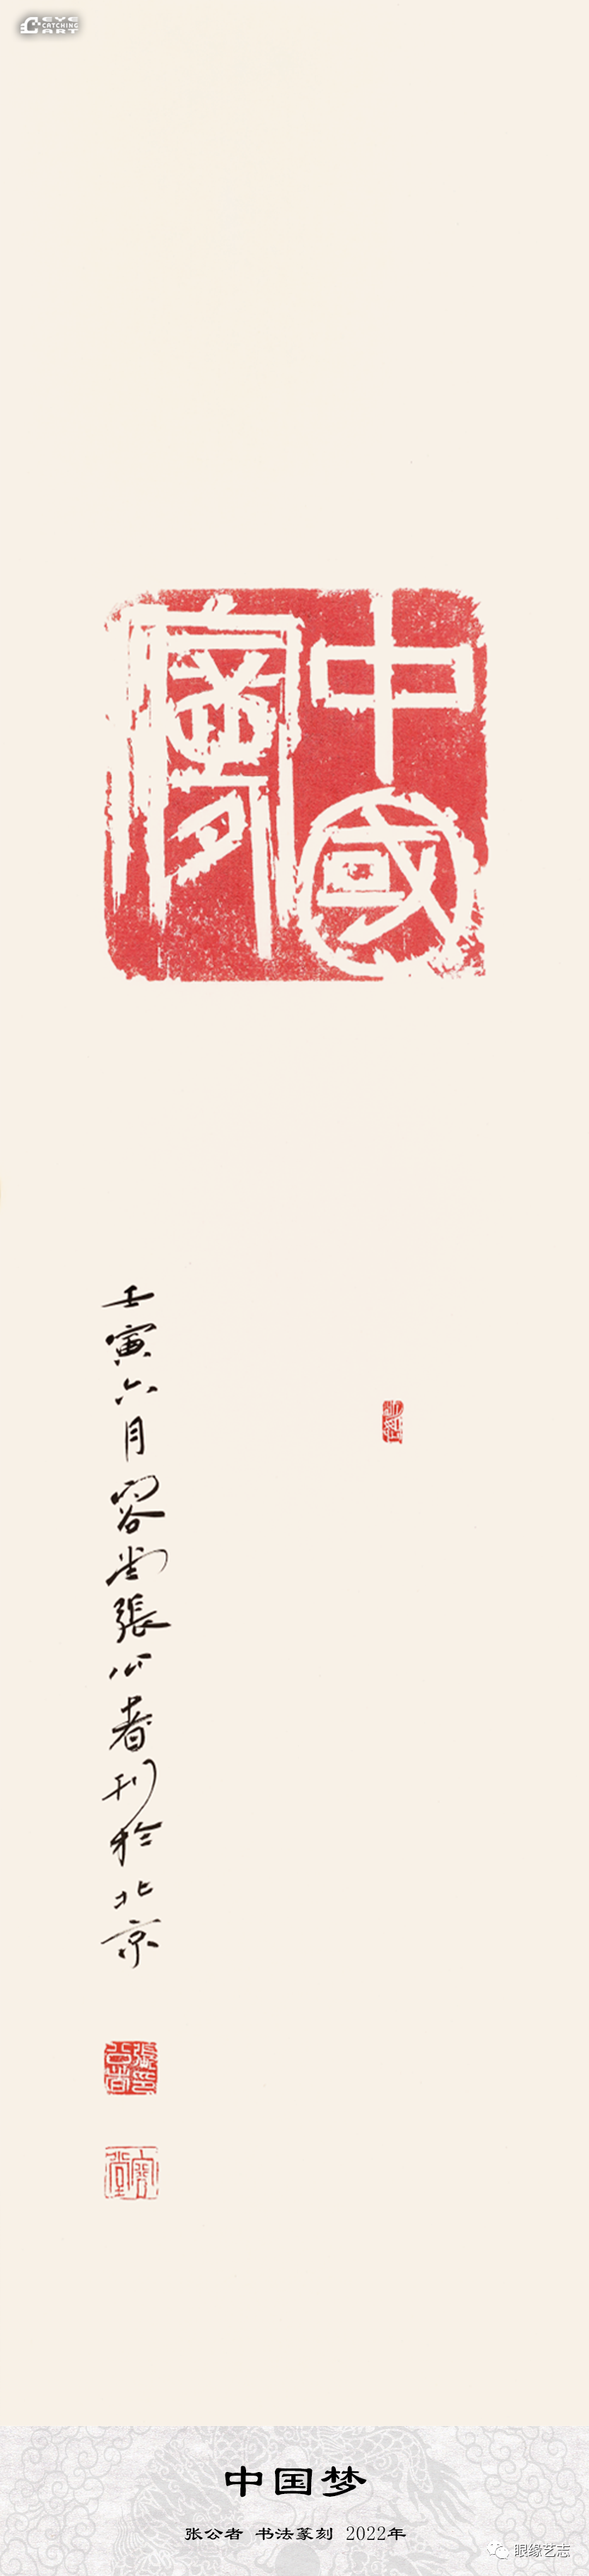 EYE
CATCHING
ART
中國㝱
壬寅六月容堂張公者刊於北京
張公者印
容堂
中国梦
张公者 书法篆刻 2022年
眼缘艺志